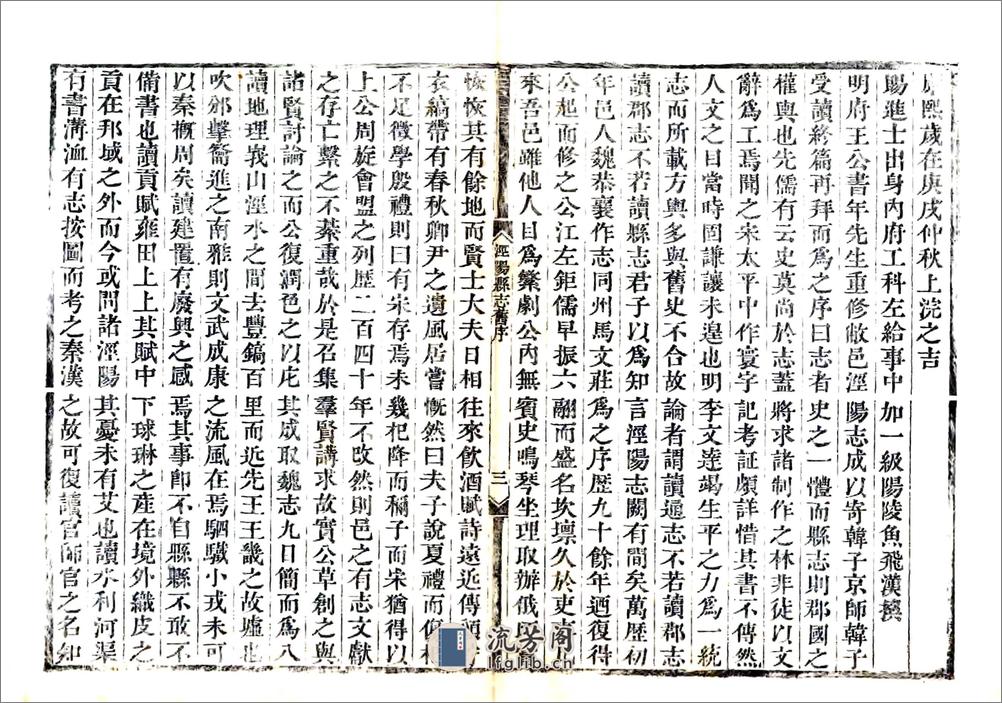 康熙歲在庚戌仲秋上浣之吉
賜進士出身內府工科左給事中加一級陽陵魚飛漢撰
明府王公書年先生重修敝邑涇陽志成以寄韓子京師韓子
受讀終篇再拜而為之序曰志者史之一體而縣志則郡國之
權輿也先儒有云史莫尚於志蓋將求諸制作之林非徒以文
辭為工焉聞之宋太平中作寰宇記考証頗詳惜其書不傳然
人文之目當時固謙讓未遑也明李文達竭生平之力為一統
志而所載方輿多與舊史不合故論者謂讀通志不若讀郡志
讀郡志不若讀縣志君子以為知言涇陽志闕有間矣萬歷初
年邑人魏恭襄作志同州馬文莊為之序歷九十餘年迺復得
公起而修之公江左鉅儒早振六翮而盛名坎壈久於吏
來吾邑雖他人目為樂劇公內無賓史鳴琴坐理取辦俄
恢恢其有餘地而賢士大夫日相往來飲酒賦詩遠近傳
衣縞帶有春秋卿尹之遺風居嘗慨然曰夫子說夏禮而
不足徵學殷禮則曰有宋存焉未幾杞降而稱子而宋猶得以
上公周旋會盟之列歷二百四十年不改然則邑之有志文獻
之存亡繫之不綦重哉於是召集羣賢講求故實公草創之與
諸賢討論之而公復潤色之以庀其成取魏志九日簡而為八
讀地理峩山涇水之間去豐鎬百里而近先王王畿之故墟也
吹邠擊籥進之南雅則文武成康之流風在焉駟驖小戎未可
以秦概周矣讀建置有廢興之感焉其事卽不自縣縣不敢不
備書也讀貢賦雍田上上其賦中下球琳之産在境外織皮之
貢在邦域之外而今或問諸涇陽其憂未有艾也讀水利河渠
有書溝洫有志按圖而考之秦漢之故可復讀官師官之名知
涇陽縣志舊序
三
流芳阁
lfglib.cn